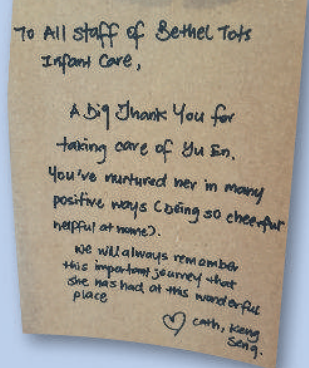 To All staff of Bethel Tots
Infant Care,
A Big Thank You for
taking care of Yu En.
You've nurtured her in many
positive ways (being so cheerful
helpful at home).
We will always remember
this important journey that
she has had at this wonderful
place
♡ Cath, Keng
Seng.